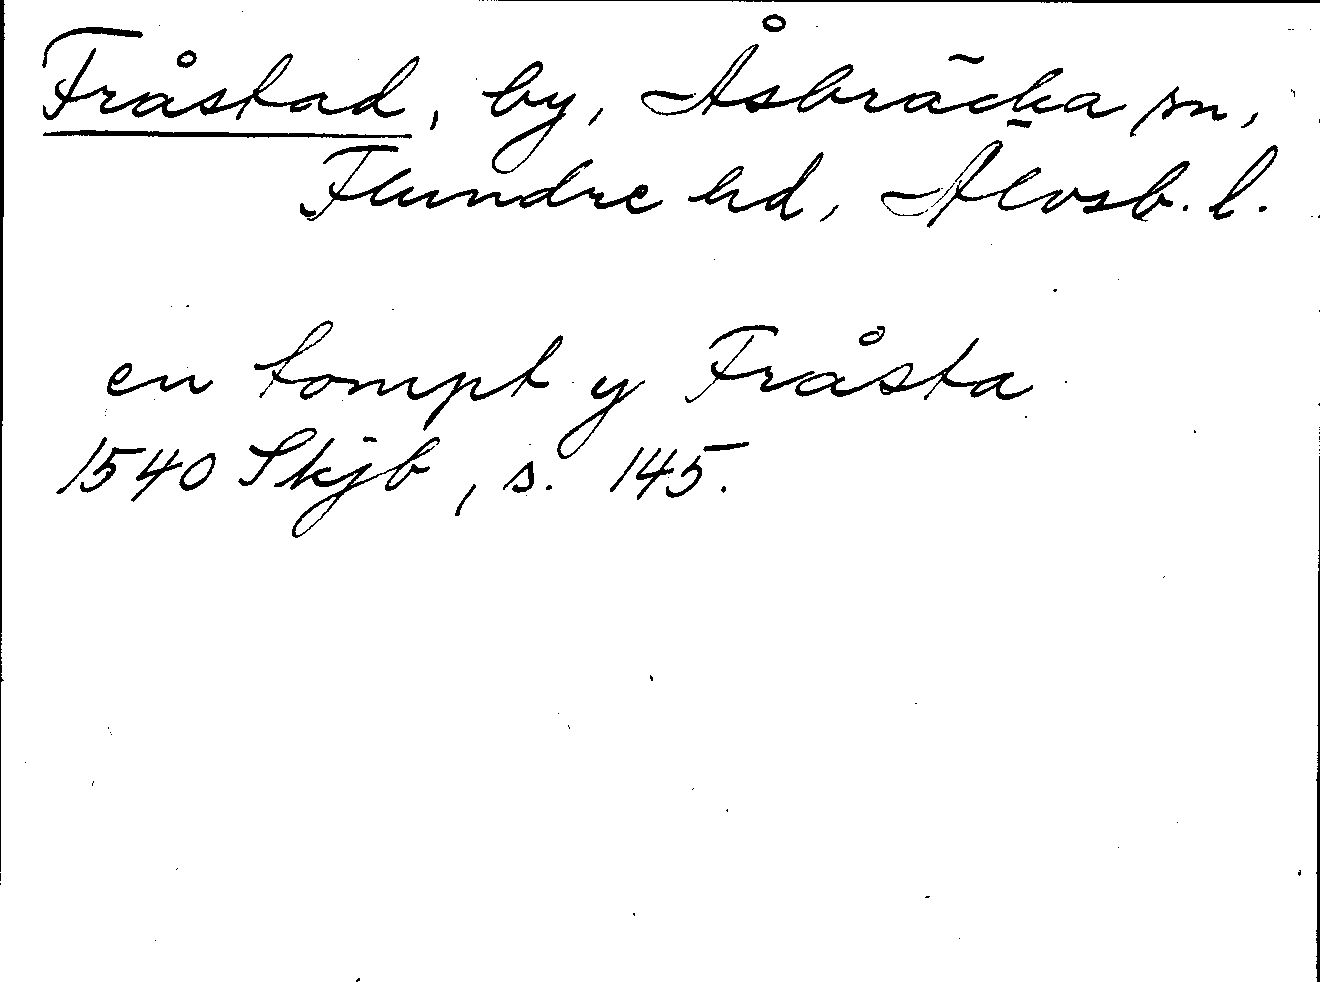 Fråstad, by, Åsbräcka sn,
Flundre hd, Älvsb. l.
en tompt y Fråsta
1540 Skjb, s. 145.